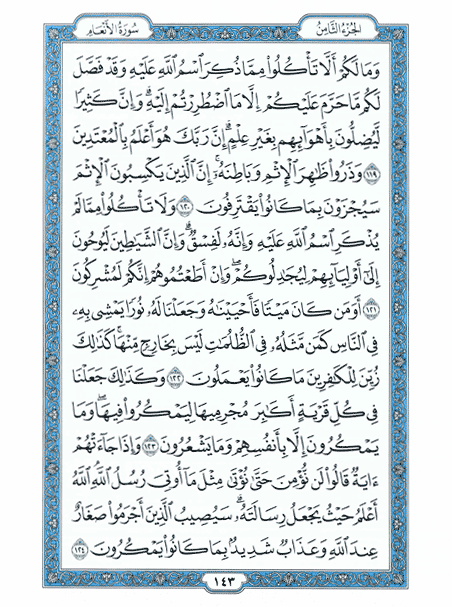 سُورَةُ الأَنْعَام
الجُزْءُ الثَّامِنُ
وَمَا لَكُمْ أَلَّا تَأْكُلُوا۟ مِمَّا ذُكِرَ ٱسْمُ ٱللَّهِ عَلَيْهِ وَقَدْ فَصَّلَ
لَكُم مَّا حَرَّمَ عَلَيْكُمْ إِلَّا مَا ٱضْطُرِرْتُمْ إِلَيْهِ ۗ وَإِنَّ كَثِيرًا
لَّيُضِلُّونَ بِأَهْوَآئِهِم بِغَيْرِ عِلْمٍ ۗ إِنَّ رَبَّكَ هُوَ أَعْلَمُ بِٱلْمُعْتَدِينَ
١١٩ وَذَرُوا۟ ظَٰهِرَ ٱلْإِثْمِ وَبَاطِنَهُۥٓ ۚ إِنَّ ٱلَّذِينَ يَكْسِبُونَ ٱلْإِثْمَ
سَيُجْزَوْنَ بِمَا كَانُوا۟ يَقْتَرِفُونَ ١٢٠ وَلَا تَأْكُلُوا۟ مِمَّا لَمْ
يُذْكَرِ ٱسْمُ ٱللَّهِ عَلَيْهِ وَإِنَّهُۥ لَفِسْقٌ ۗ وَإِنَّ ٱلشَّيَٰطِينَ لَيُوحُونَ
إِلَىٰٓ أَوْلِيَآئِهِمْ لِيُجَٰدِلُوكُمْ ۖ وَإِنْ أَطَعْتُمُوهُمْ إِنَّكُمْ لَمُشْرِكُونَ
١٢١ أَوَمَن كَانَ مَيْتًا فَأَحْيَيْنَٰهُ وَجَعَلْنَا لَهُۥ نُورًا يَمْشِى بِهِۦ
فِى ٱلنَّاسِ كَمَن مَّثَلُهُۥ فِى ٱلظُّلُمَٰتِ لَيْسَ بِخَارِجٍ مِّنْهَا ۚ كَذَٰلِكَ
زُيِّنَ لِلْكَٰفِرِينَ مَا كَانُوا۟ يَعْمَلُونَ ١٢٢ وَكَذَٰلِكَ جَعَلْنَا
فِى كُلِّ قَرْيَةٍ أَكَٰبِرَ مُجْرِمِيهَا لِيَمْكُرُوا۟ فِيهَا ۖ وَمَا
يَمْكُرُونَ إِلَّا بِأَنفُسِهِمْ وَمَا يَشْعُرُونَ ١٢٣ وَإِذَا جَآءَتْهُمْ
ءَايَةٌ قَالُوا۟ لَن نُّؤْمِنَ حَتَّىٰ نُؤْتَىٰ مِثْلَ مَآ أُوتِىَ رُسُلُ ٱللَّهِ ۘ ٱللَّهُ
أَعْلَمُ حَيْثُ يَجْعَلُ رِسَالَتَهُۥ ۗ سَيُصِيبُ ٱلَّذِينَ أَجْرَمُوا۟ صَغَارٌ
عِندَ ٱللَّهِ وَعَذَابٌ شَدِيدٌۢ بِمَا كَانُوا۟ يَمْكُرُونَ ١٢٤
١٤٣